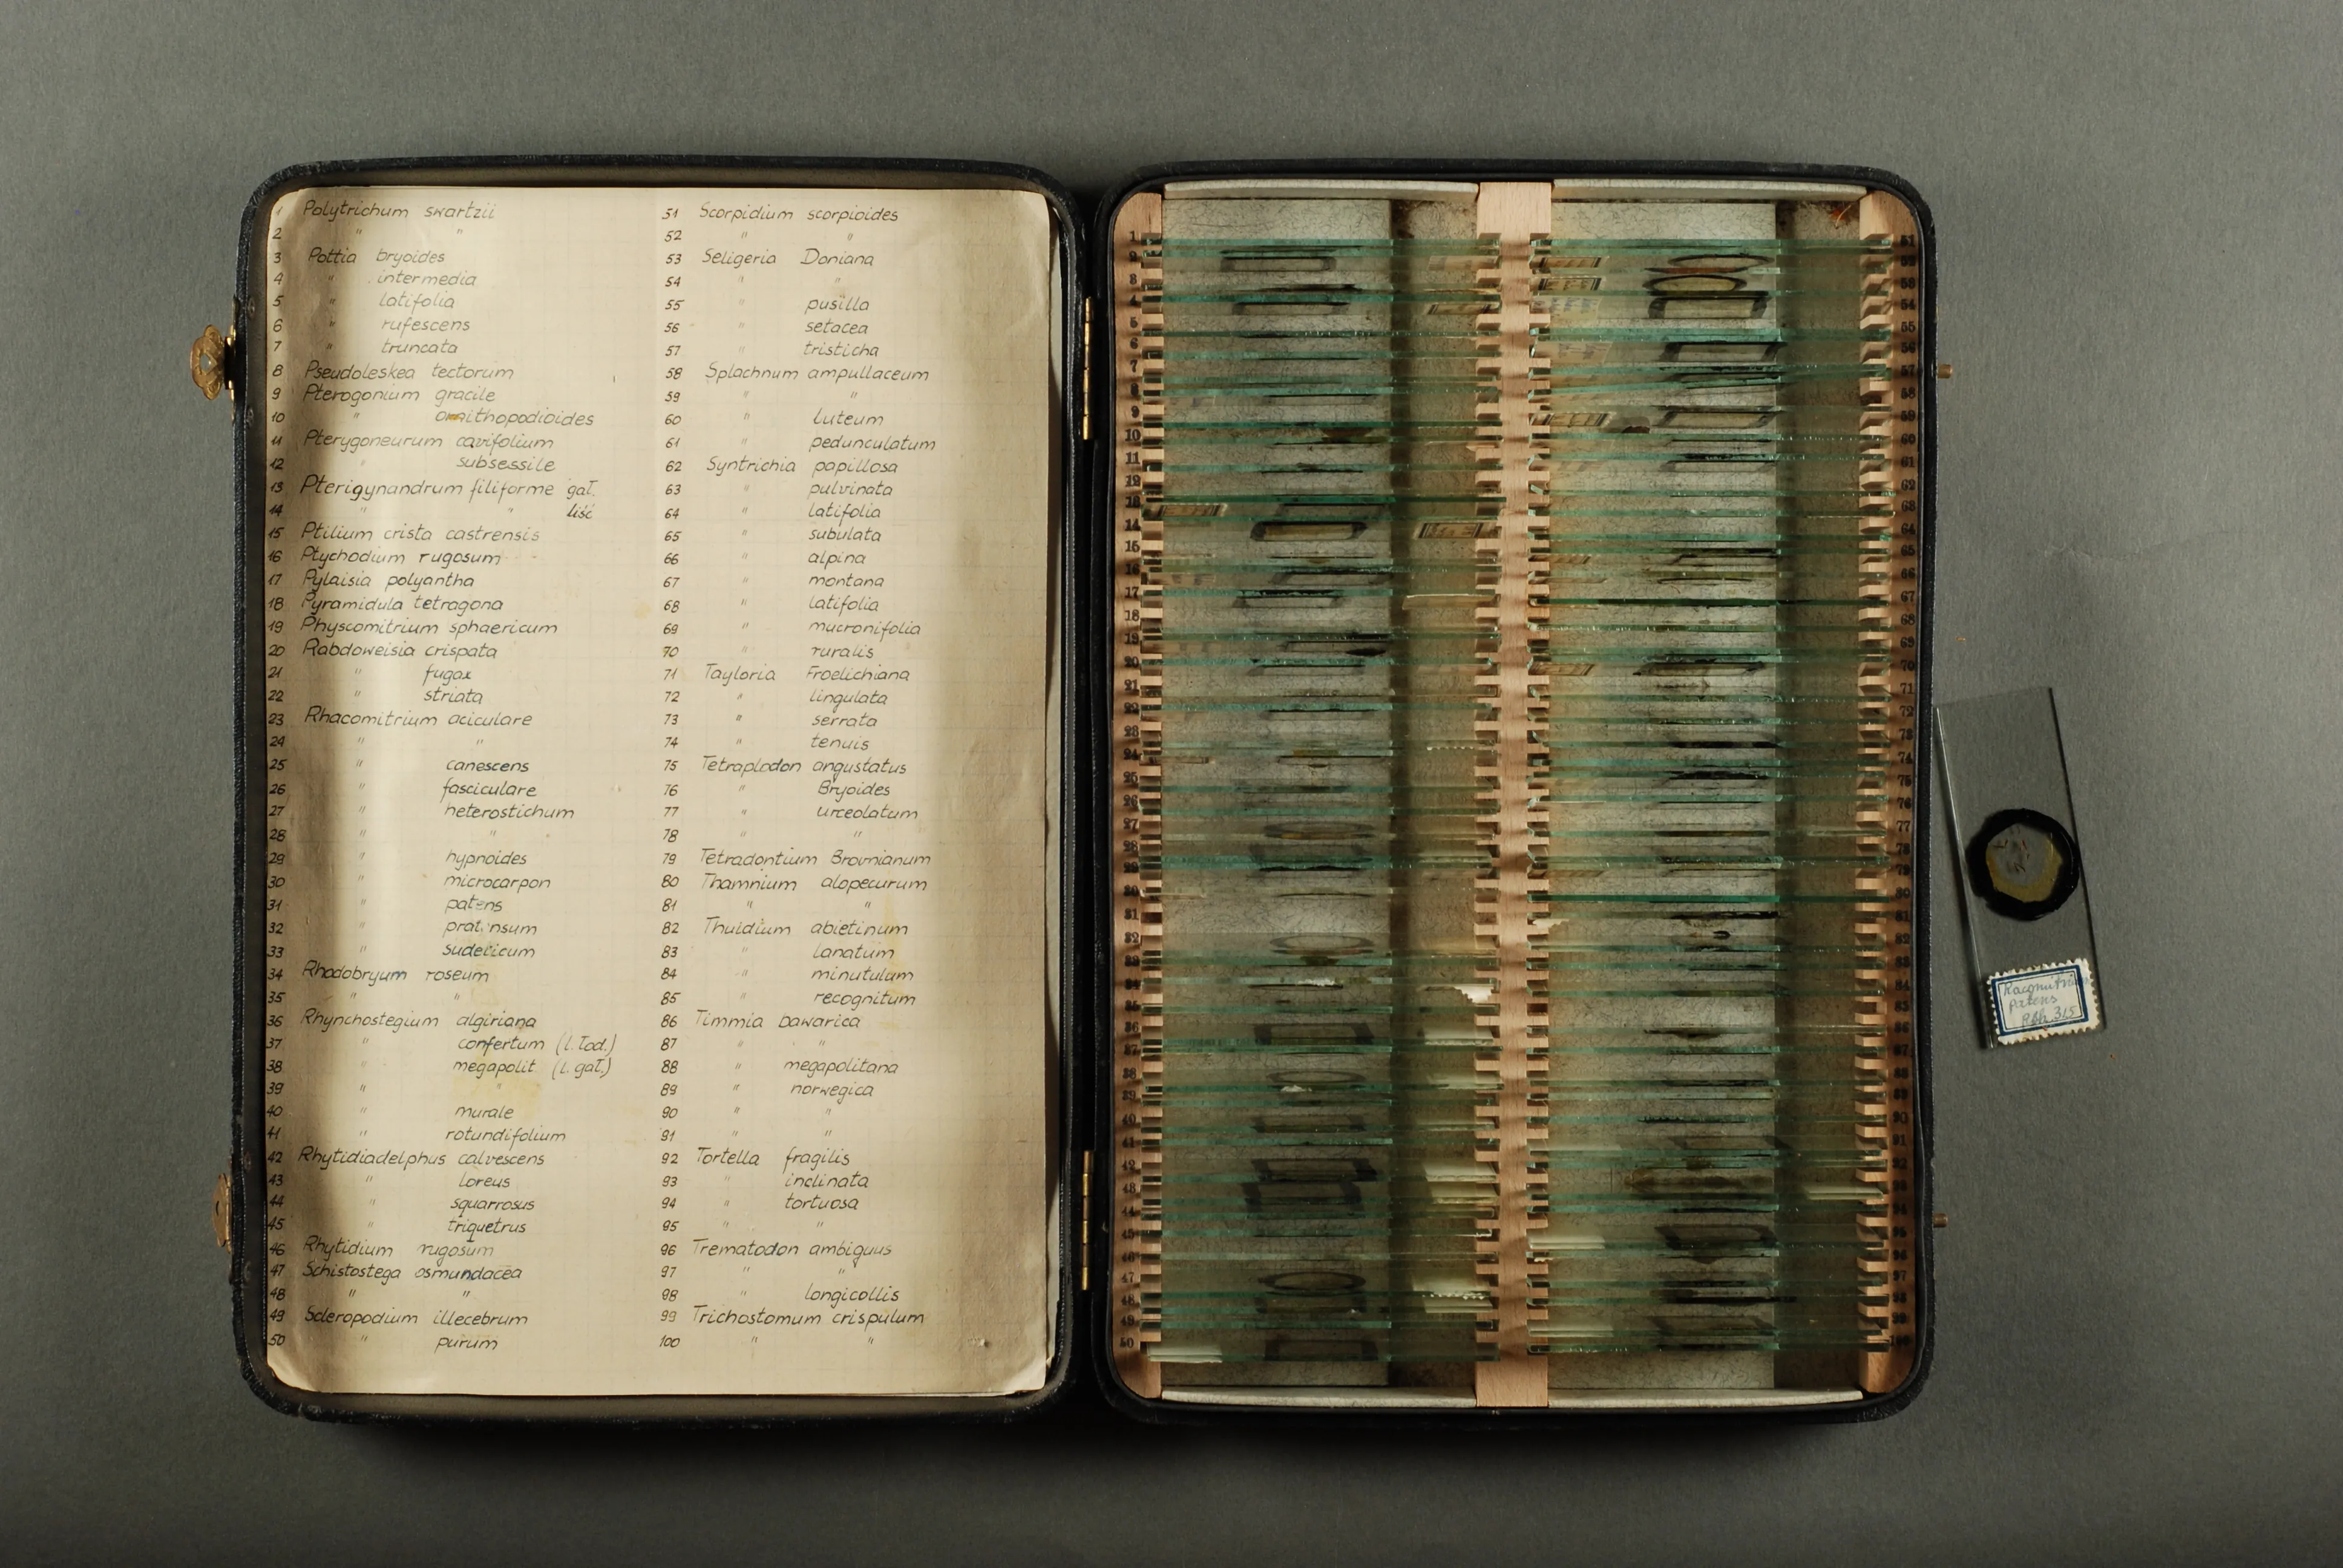 1 Polytrichum swartzii
2 " "
3 Pottia bryoides
4 " intermedia
5 " latifolia
6 " rufescens
7 " truncata
8 Pseudoleskea tectorum
9 Pterogonium gracile
10 " ornithopodioides
11 Pterygoneurum cavifolium
12 " subsessile
13 Pterigynandrum filiforme gał.
14 " " liść
15 Ptilium crista castrensis
16 Ptychodium rugosum
17 Pylaisia polyantha
18 Pyramidula tetragona
19 Physcomitrium sphaericum
20 Rabdoweisia crispata
21 " fugax
22 " striata
23 Rhacomitrium aciculare
24 " "
25 " canescens
26 " fasciculare
27 " heterostichum
28 " "
29 " hypnoides
30 " microcarpon
31 " patens
32 " prat.nsum
33 " sudeticum
34 Rhodobryum roseum
35 " "
36 Rhynchostegium algiriana
37 " confertum (l. łod.)
38 " megapolit. (l. gał.)
39 " "
40 " murale
41 " rotundifolium
42 Rhytidiadelphus calvescens
43 " loreus
44 " squarrosus
45 " triquetrus
46 Rhytidium rugosum
47 Schistostega osmundacea
48 " "
49 Scleropodium illecebrum
50 " purum
51 Scorpidium scorpioides
52 " "
53 Seligeria Doniana
54 " "
55 " pusilla
56 " setacea
57 " tristicha
58 Splachnum ampullaceum
59 " "
60 " luteum
61 " pedunculatum
62 Syntrichia papillosa
63 " pulvinata
64 " latifolia
65 " subulata
66 " alpina
67 " montana
68 " latifolia
69 " mucronifolia
70 " ruralis
71 Tayloria Froelichiana
72 " lingulata
73 " serrata
74 " tenuis
75 Tetraplodon angustatus
76 " Bryoides
77 " urceolatum
78 " "
79 Tetradontium Brovnianum
80 Thamnium alopecurum
81 " "
82 Thuidium abietinum
83 " lanatum
84 " minutulum
85 " recognitum
86 Timmia bawarica
87 " "
88 " megapolitana
89 " norwegica
90 " "
91 " "
92 Tortella fragilis
93 " inclinata
94 " tortuosa
95 " "
96 Trematodon ambiguus
97 " "
98 " longicollis
99 Trichostomum crispulum
100 " "
patens
Rbh. 315